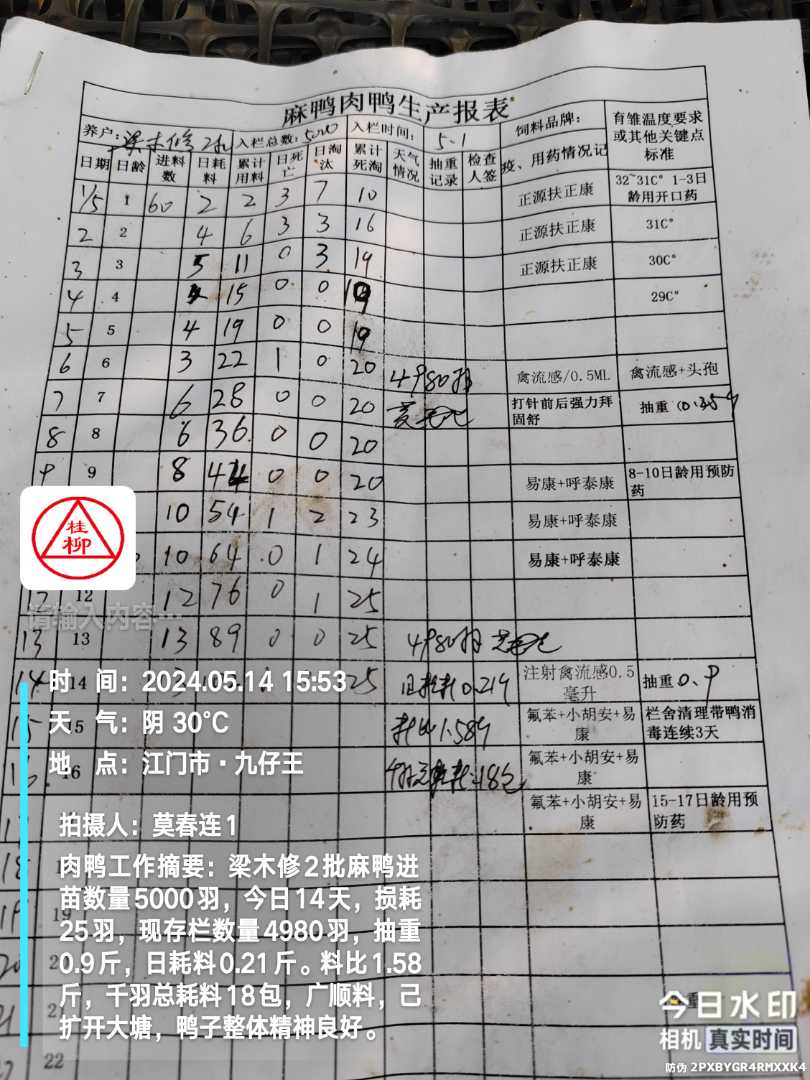 麻鸭肉鸭生产报表
养户: 梁木修 2批 入栏总数: 入栏时间: 5.1 饲料品牌: 育雏温度要求或其他关键点标准
日期 日龄 进料数 日耗料 累计用料 日死亡 日淘汰 累计死淘 天气情况 抽重记录 检查人签 疫、用药情况记
1/5 1 60 2 2 3 7 10 正源扶正康 32~31C° 1-3日龄用开口药
2 2 4 6 3 3 16 正源扶正康 31C°
3 3 5 11 0 3 19 正源扶正康 30C°
4 4 4 15 0 0 19 29C°
5 5 4 19 0 0 19
6 6 3 22 1 0 20 4980羽 禽流感/0.5ML 禽流感+头孢
7 7 6 28 0 0 20 打针前后强力拜固舒 抽重
8 8 6 36 0 0 20
9 9 8 44 0 0 20 易康+呼泰康 8-10日龄用预防药
10 54 1 2 23 易康+呼泰康
10 64 0 1 24 易康+呼泰康
12 12 12 76 0 1 25
13 13 13 89 0 0 25 4980羽
14 14 25 日耗料0.219 注射禽流感0.5毫升 抽重0.9
15 料比1.589 氟苯+小胡安+易康 栏舍清理带鸭消毒连续3天
16 16 18包 氟苯+小胡安+易康
氟苯+小胡安+易康 15-17日龄用预防药
18
19 19
20
21
22
桂柳
请输入内容…
时 间: 2024.05.14 15:53
天 气: 阴 30°C
地 点: 江门市·九仔王
拍摄人: 莫春连1
肉鸭工作摘要: 梁木修2批麻鸭进
苗数量5000羽，今日14天，损耗
25羽，现存栏数量4980羽，抽重
0.9斤，日耗料0.21斤。料比1.58
斤，千羽总耗料18包，广顺料，己
扩开大塘，鸭子整体精神良好。
今日水印
相机 真实时间
防伪 2PXBYGR4RMXXK4